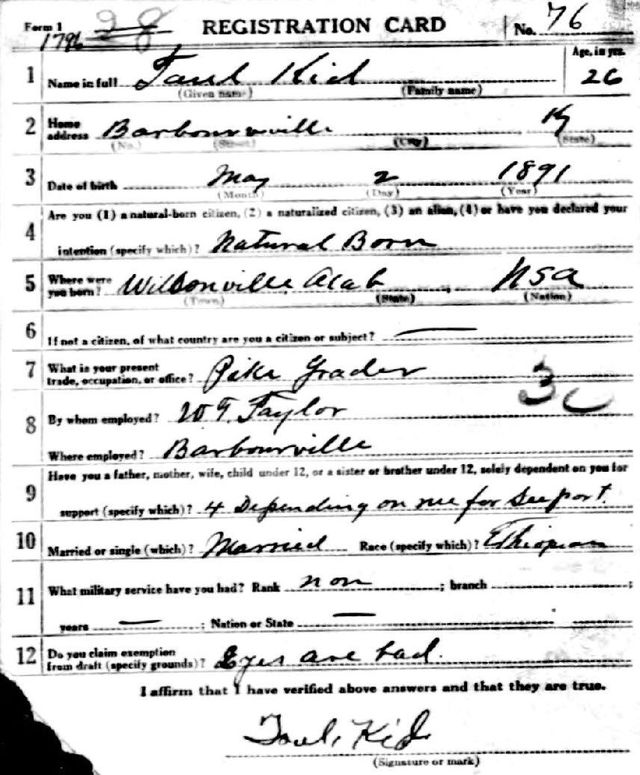 Form 1 REGISTRATION CARD No. 76
1796 28
Age, in yrs.
1 Name in full Taul Kid 26
(Given name) (Family name)
2 Home address Barbourville Ky
(No.) (Street) (City) (State)
3 Date of birth May 2 1891
(Month) (Day) (Year)
Are you (1) a natural-born citizen, (2) a naturalized citizen, (3) an alien, (4) or have you declared your
4 intention (specify which)? Natural Born
5 Where were you born? Wilsonville Alab USA
(Town) (State) (Nation)
6 If not a citizen, of what country are you a citizen or subject? —
7 What is your present trade, occupation, or office? Pike Grader 3
8 By whom employed? W. T. Taylor
Where employed? Barbourville
Have you a father, mother, wife, child under 12, or a sister or brother under 12, solely dependent on you for
9 support (specify which)? 4 Depending on me for Seeport.
10 Married or single (which)? Married Race (specify which)? Ethiopian
11 What military service have you had? Rank non ; branch ;
years — ; Nation or State —
12 Do you claim exemption from draft (specify grounds)? Eyes are bad.
I affirm that I have verified above answers and that they are true.
Taul Kid
(Signature or mark)